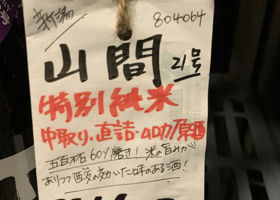 新潟
804064
山間 21号
特別純米
中取り・直詰・無ロカ原酒
五百万石60%磨き！米の旨みが
ありつつ酸の効いた味のある酒！